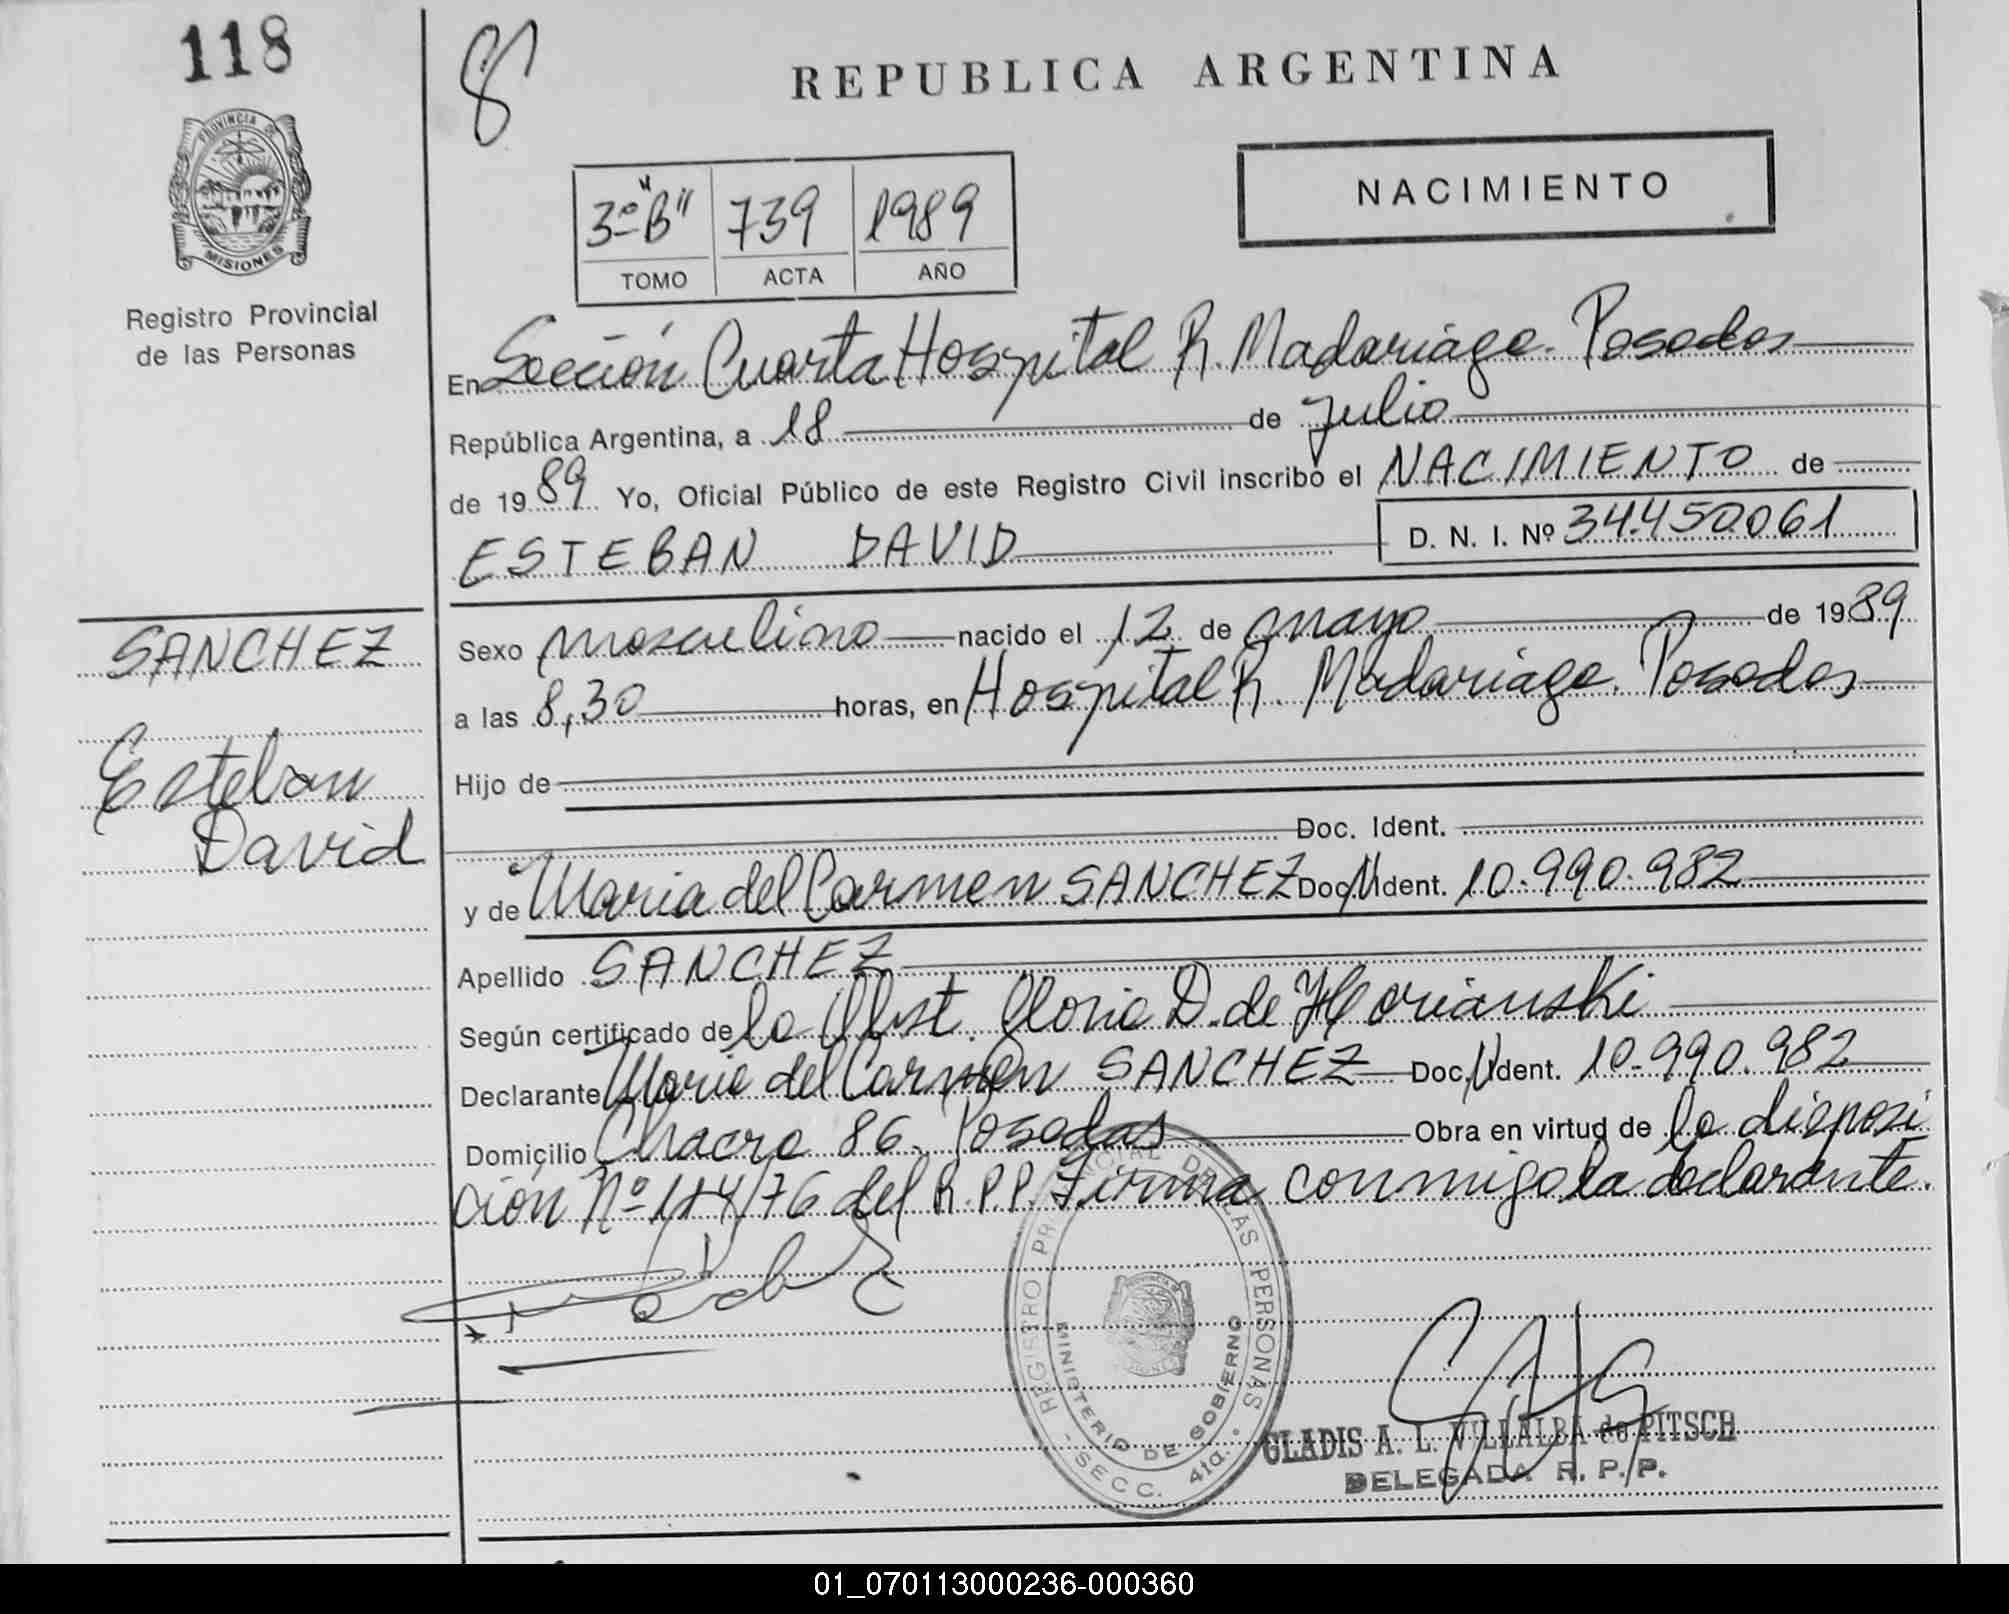 118
REPUBLICA ARGENTINA
PROVINCIA DE
MISIONES
Registro Provincial
de las Personas
3º "B" 739 1989
TOMO ACTA AÑO
NACIMIENTO
En Sección Cuarta Hospital R. Madariaga. Posadas
República Argentina, a 18 de Julio
de 1989 Yo, Oficial Público de este Registro Civil inscribo el NACIMIENTO de
ESTEBAN DAVID D. N. I. Nº 34.450.061
SANCHEZ
Esteban
David
Sexo masculino nacido el 12 de mayo de 1989
a las 8,30 horas, en Hospital R. Madariaga. Posadas
Hijo de
Doc. Ident.
y de Maria del Carmen SANCHEZ Doc. Ident. 10.990.982
Apellido SANCHEZ
Según certificado de la Obst. Gloria D. de
Declarante Maria del Carmen SANCHEZ Doc. Ident. 10.990.982
Domicilio Chacra 86. Posadas Obra en virtud de la disposi
ción Nº 114/76 del R.P.P. Firma conmigo la declarante.
REGISTRO PROVINCIAL DE LAS PERSONAS
MINISTERIO DE GOBIERNO
- SECC. 4ta. -
GLADIS A. L. VILLALBA de PITSCH
DELEGADA R. P. P.
01_070113000236-000360